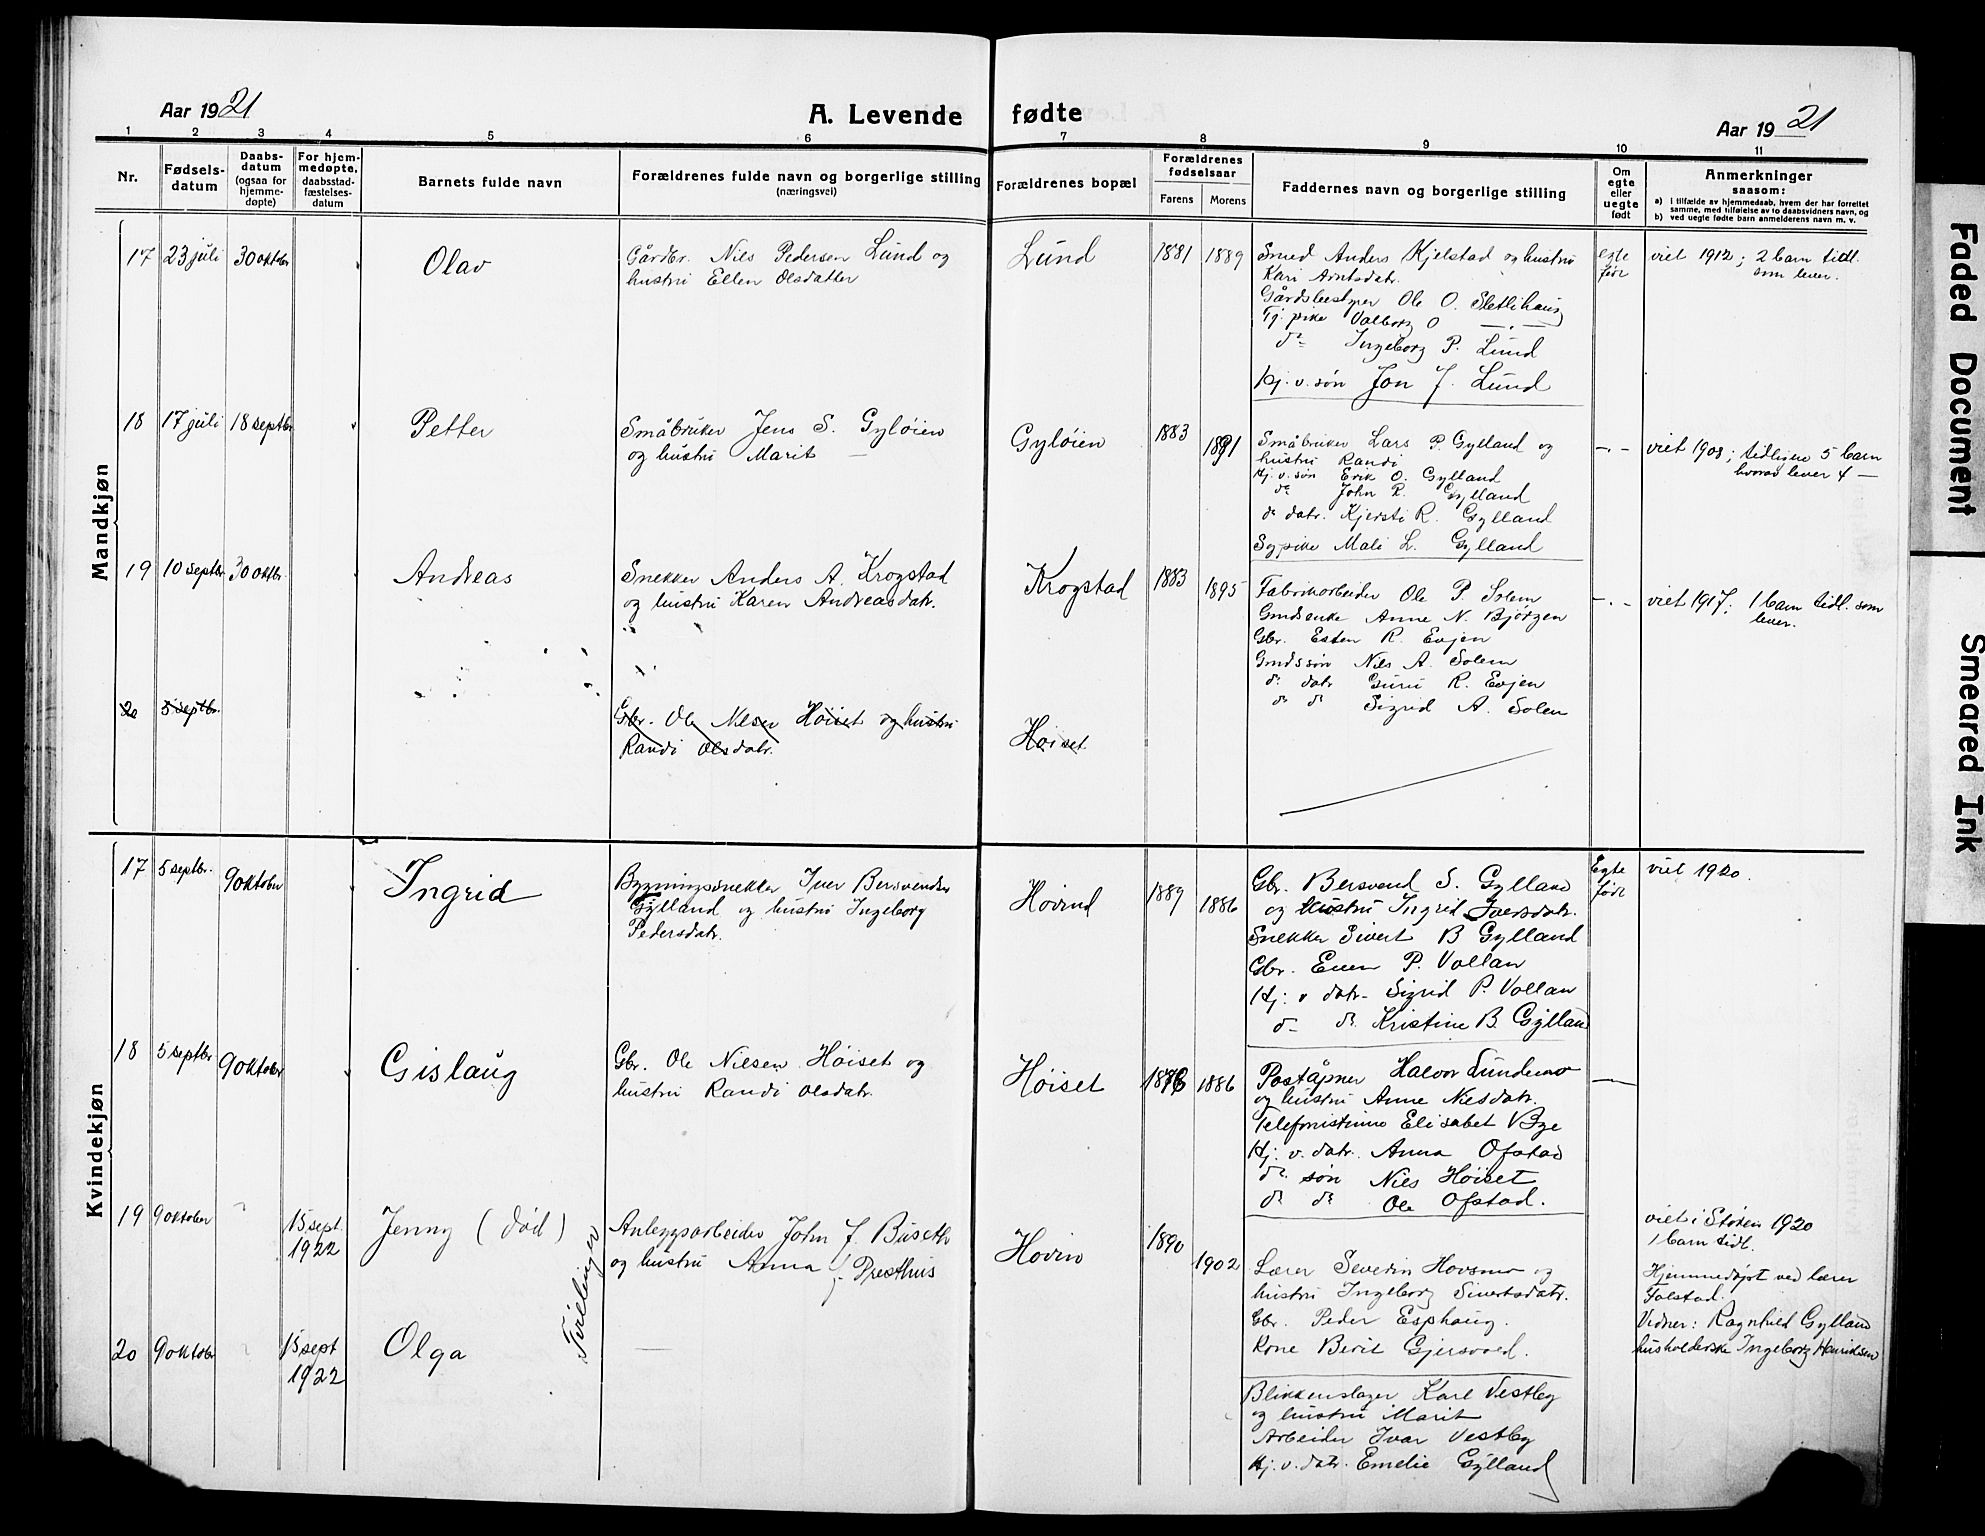 Aar 1921
A. Levende fødte
Aar 1921
1 2 3 4 5 6 7 8 9 10 11
Nr.
Fødsels-
datum
Daabs-
datum
(ogsaa for
hjemme-
døpte)
For hjem-
medøpte,
daabsstad-
fæstelses-
datum
Barnets fulde navn
Forældrenes fulde navn og borgerlige stilling
(næringsvei)
Forældrenes bopæl
Forældrenes
fødselsaar
Farens Morens
Faddernes navn og borgerlige stilling
Om
egte
eller
uegte
født
Anmerkninger
saasom:
a) I tilfælde av hjemmedaab, hvem der har forrettet
samme, med tilføielse av to daabsvidners navn, og
b) ved uegte fødte barn anmelderens navn m. v.
Mandkjøn
17 23 juli 30 oktbr
Olav
Gårdbr. Nils Pedersen Lund og
hustru Ellen Olsdatter
Lund
1881 1889
Smed Anders Kjelstad og hustru
Kari Arntsdatr.
Gårdsbestyrer Ole O. Sletlihaug
Tj. pike Valborg O — " —
do Ingeborg P. Lund
Hj. v. søn Jon J. Lund
egte
født
viet 1912; 2 barn tidl.
som lever.
18 17 juli 18 septbr
Petter
Småbruker Jens S. Gyløien
og hustru Marit —
Gyløien
1883 1891
Småbruker Lars P. Gylland og
hustru Randi
Hj. v. søn Erik O. Gylland
do John R. Gylland
do datr. Kjersti R. Gylland
Sypike Mali L. Gylland
— " —
viet 1908; tidligere 5 barn
hvorav lever 4 —
19 10 septbr 30 oktbr.
Andreas
Snekker Anders A. Krogstad
og hustru Karen Andreasdatr.
Krogstad
1883 1895
Fabrikarbeider Ole P. Solem
Gmdsenke Anne N. Bjørgen
Gbr. Esten R. Evjen
Gmdssøn Nils A. Solem
do datr Guru R. Evjen
do do Sigrid A. Solem
— " —
viet 1917; 1 barn tidl. som
lever.
20 5 septbr.
Gbr. Ole Nilsen Høiset og hustru
Randi Olsdatr.
Høiset
Kvindekjøn
17 5 septbr. 9 oktober
Ingrid
Bygningssnekker Iver Bersvendsen
Gylland og hustru Ingeborg
Pedersdatr.
Hovind
1889 1886
Gbr. Bersvend S. Gylland
og hustru Ingrid Iversdatr.
Snekker Sivert B Gylland
Gbr. Even P. Vollan
Hj. v datr Sigrid P. Vollan
do do Kristine B. Gylland
Egte
født
viet 1920.
18 5 septbr 9 oktober
Gislaug
Gbr. Ole Nilsen Høiset og
hustru Randi Olsdatr.
Høiset
1886
Poståpner Halvor Lundemo
og hustru Anne Nilsdatr.
Telefonistinne Elisabet Bye
Hj. v. datr. Anna Ofstad
do søn Nils Høiset
do do Ole Ofstad.
—
19 9 oktober 15 sept.
1922
Jenny (død)
Tvillinger
Anleggsarbeider John J. Buseth
og hustru Anna J. Presthus
Hovin
1890 1902
Lærer Severin Hovsmo og
hustru Ingeborg Sivertsdatr.
Gbr. Peder Esphaug.
Kone Berit Gjersvold.
viet i Støren 1920
1 barn tidl.
Hjemmedøpt ved lærer
Folstad.
Vidner: Ragnhild Gylland
husholderske Ingeborg Henriksen
20 9 oktobr 15 sept
1922
Olga
—
Blikkenslager Karl Vestby
og hustru Marit
Arbeider Ivar Vestby
Hj. v. datr. Emelie Gylland
Faded Document
Smeared Ink